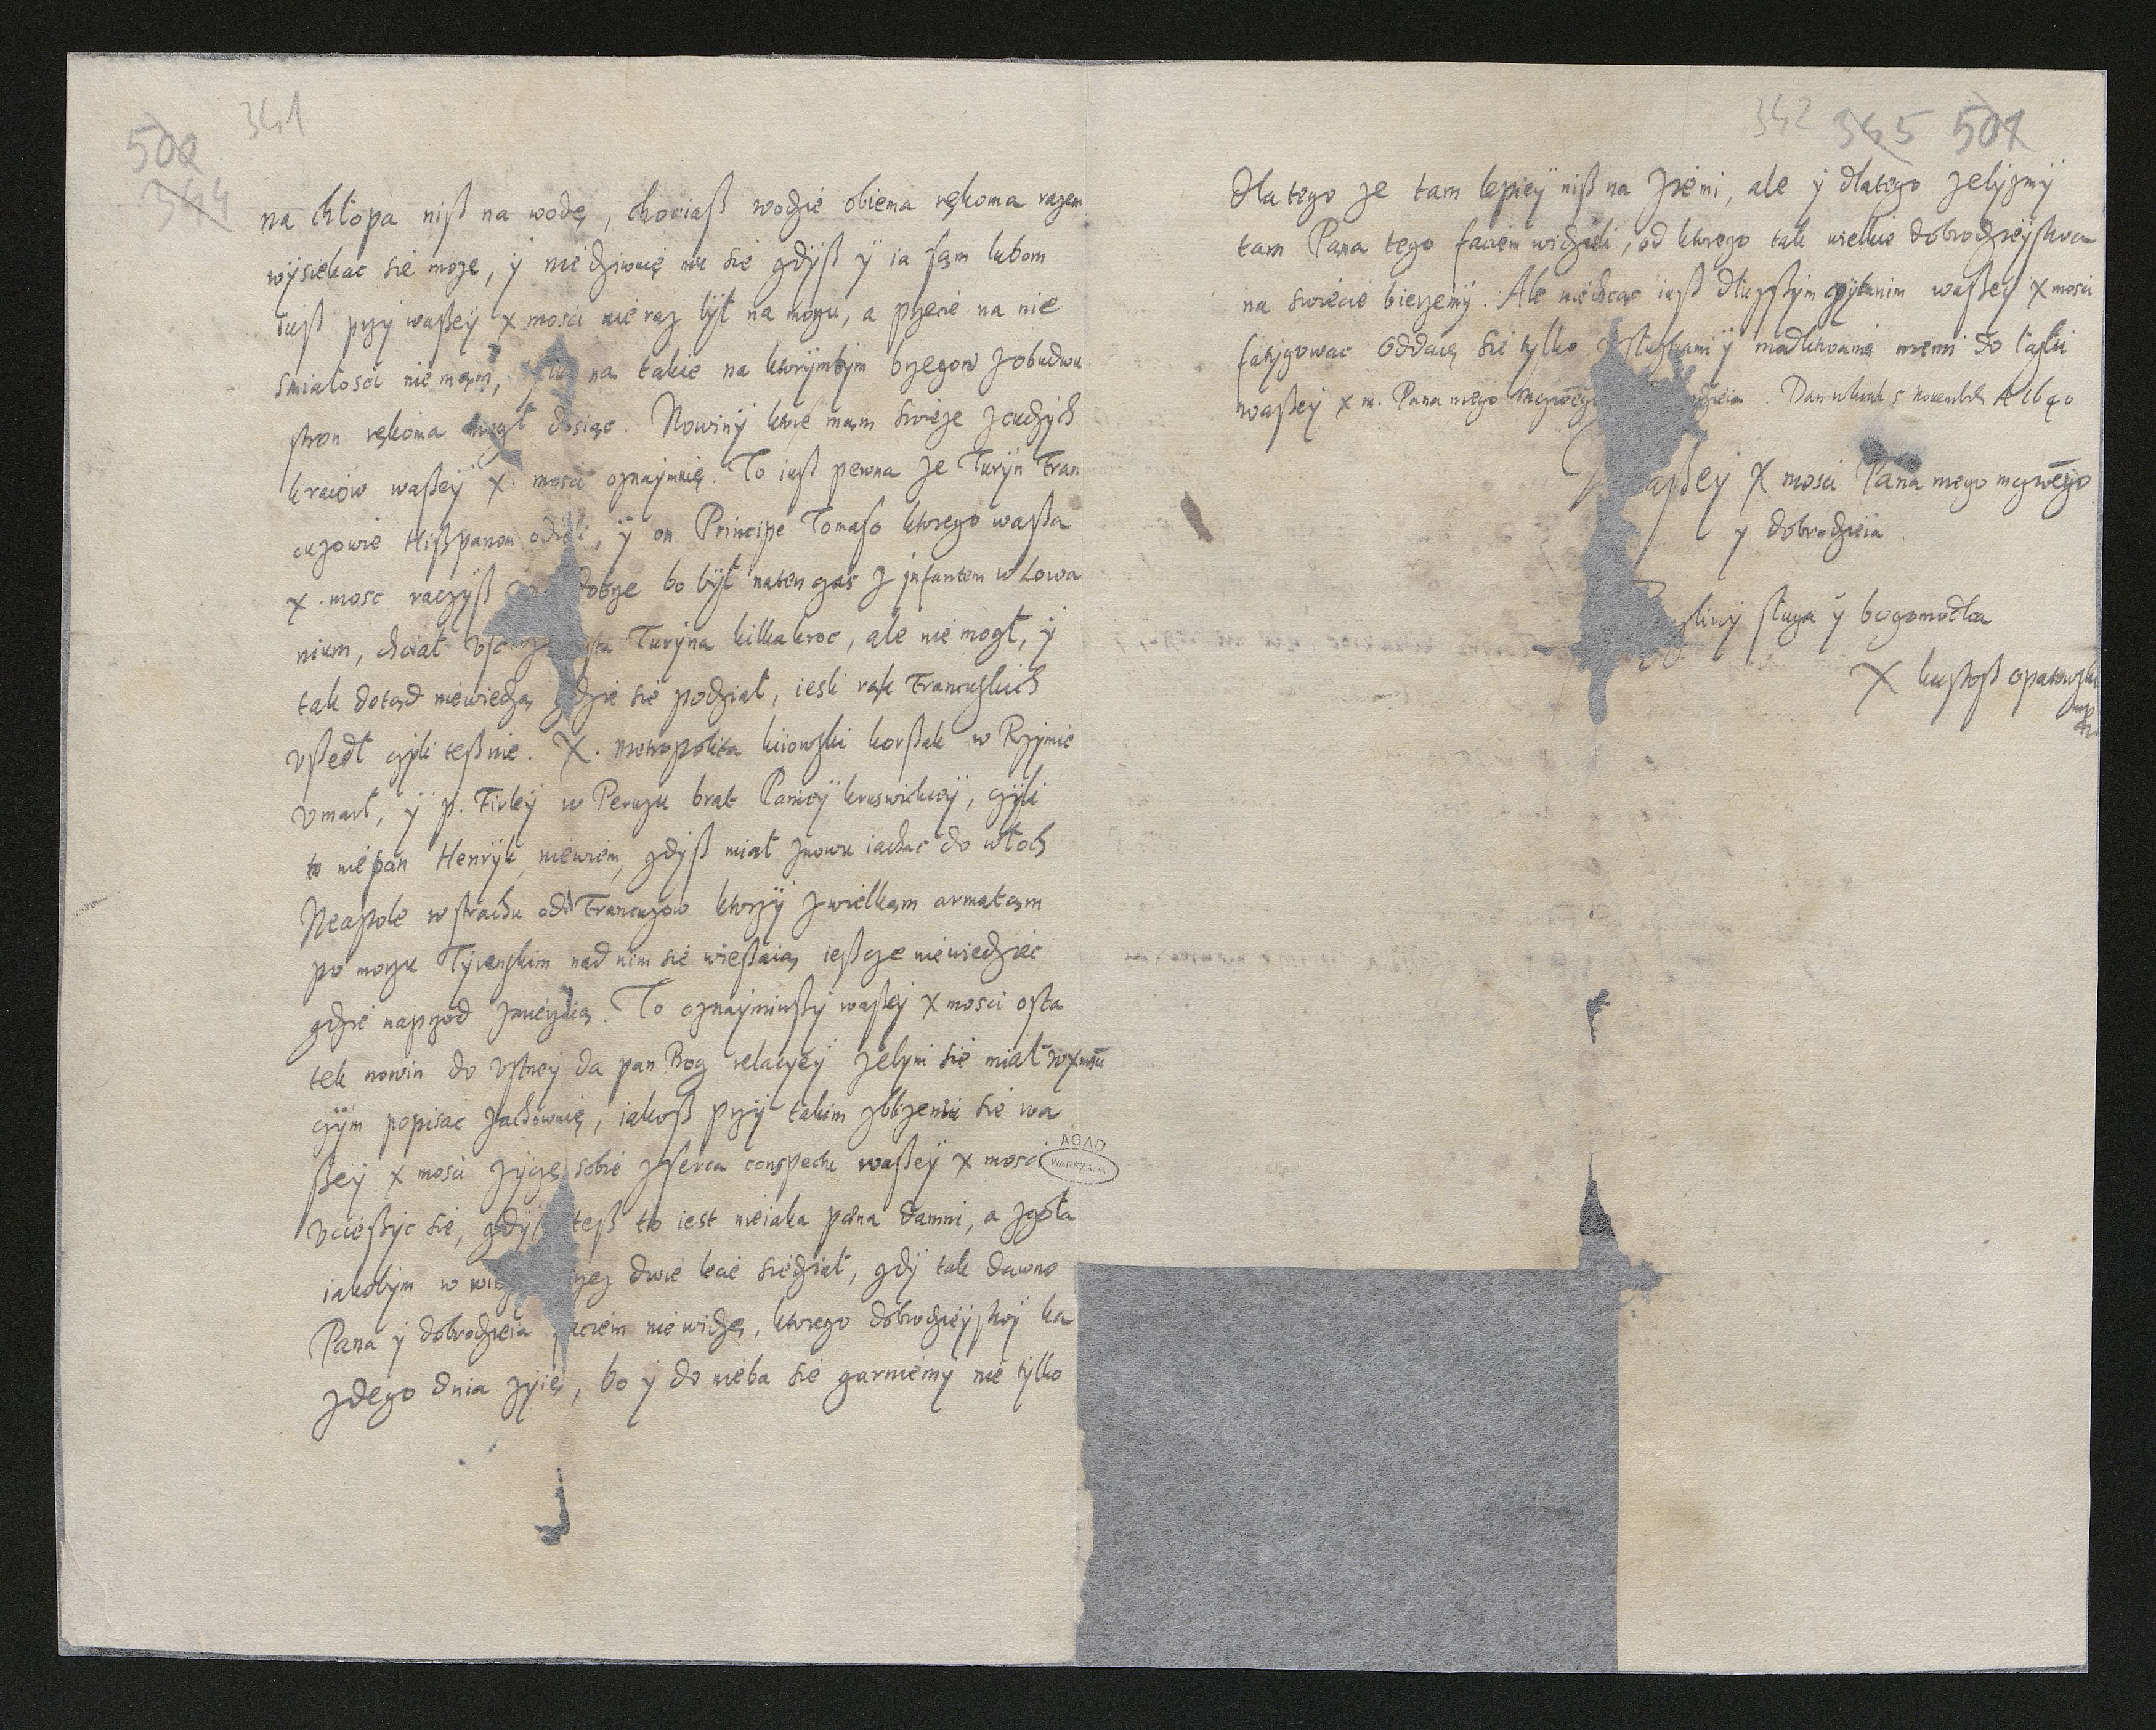 500 341
344
na chłopa niß na wodę, chociaß wodzie obiema rękoma razem
wysiekac się moze, y niedziwuię mu się gdyß y ia sam lubom
iuß przy waßey x mosci nie raz był na morzu, a przecie na nie
smiałosci niemam, na takie na ktorymbym brzegow z obudwu
stron rękoma mogł dosiąc. Nowiny ktore mam swieze z cudzych
kraiow waßey x. mosci oznaymuię. To iuß pewna ze Turyn Fran
cuzowie Hißpanom odięli, y on Principe Tomaso ktorego waßa
x. mosc raczyß dobrze bo był naten czas z infantem w Lowa
nium, chciał Turyna kilka kroc, ale nie mogł, y
tak dotąd niewiedzą gdzie się podział, iesli rąk Francuzkich
vßedł czyli teß nie. X. Metropolita kiiowski korßak w Rzymie
vmarł, y p. Firley w Peruzu brat Paniey kruswickiey, czyli
to nie pan Henryk, niewiem, gdyß miał znowu iachac do włoch
Neapole w strachu od Francuzow ktorzy z wielkąm armatąm
po morzu Tyrenskim nad nim się wießaią, ießcze niewiedziec
gdzie naprzod zmierzią. To oznaymiwßy waßey x mosci osta
tek nowin do vstney da pan Bog relacyey zebym się miał w x mści
czym popisac zachowuię, iakoß przy takim zblizeniu się wa
ßey x mosci zyczę sobie z serca conspectu waßey x mosci
AGAD
WARSZAWA
vcießyc się, gdyß teß to iest nieiaka pæna damni, a zgoła
iakobym w przez dwie lecie siedział, gdy tak dawno
Pana y dobrodzieia faciem niewidzę, ktorego dobrodzieystwy ka
zdego dnia zyię, bo y do nieba się garniemy nie tylko
342 345 501
dlatego ze tam lepiey niß na Ziemi, ale y dlatego zebyzmy
tam Pana tego faciem widzieli, od ktorego tak wielkie dobrodzieystwa
na swiecie bierzemy. Ale niechcąc iuß dłuzßym czytanim waßey x mosci
fatygowac Oddaię się tylko z słuzbami y modlitwami memi do łaski
waßey x m. Pana mego mczwego Dan 5 Novembr A 1640
Waßey X mosci Pana mego mczwego
y dobrodzieia
sliwy sługa y bogomodlca
X kustoß opatowski
mp